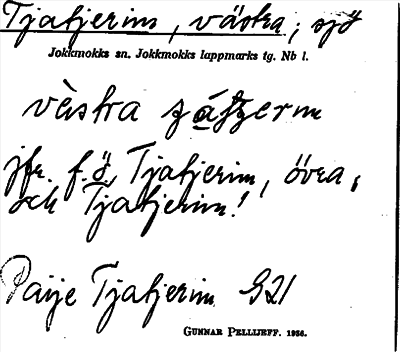 Tjatjerim, västra; sjö
Jokkmokks sn. Jokkmokks lappmarks tg. Nb l.
västra
jfr. f.ö. Tjatjerim, övra,
och Tjatjerim!
Paije Tjatjerim G21
GUNNAR PELLIJEFF. 1956.